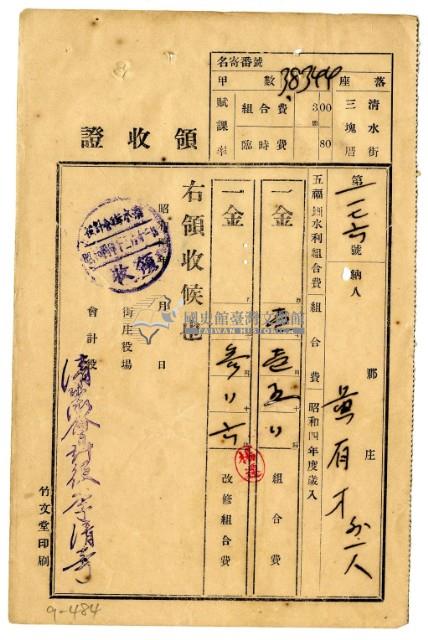 領收證
名寄番號
落座 數甲
清水街三塊厝
38344
賦課率
組合費 3.00
臨時費 80
第一一七六號納人 郡 庄
黃有才外二人
五福圳水利組合費 組合費 昭和四年度歲入
一金 壹五 組合費
一金 參 六 改修組合費
右領收候也
昭和 年 月 日
街庄役場
會計役
清水街會計役
領收
竹文堂印刷
國史館臺灣文獻館
TAIWAN HISTORICA
9-484